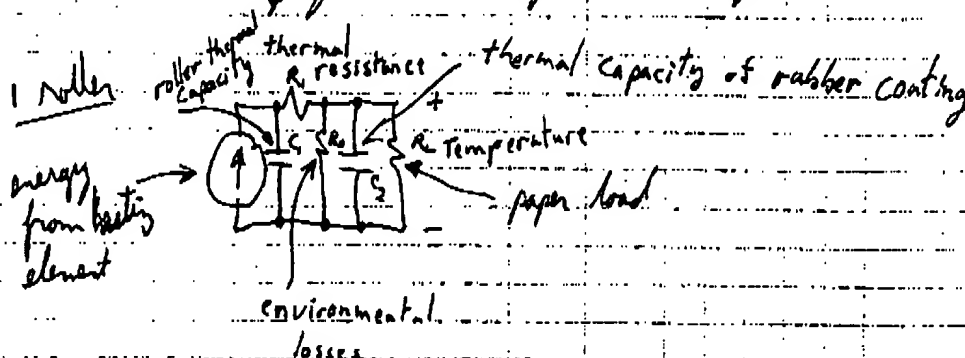 1 roller
roller thermal capacity
thermal resistance
R1
thermal capacity of rubber coating
+
C1
R0
C2
RL Temperature
energy from heating element
paper load
-
environmental losses